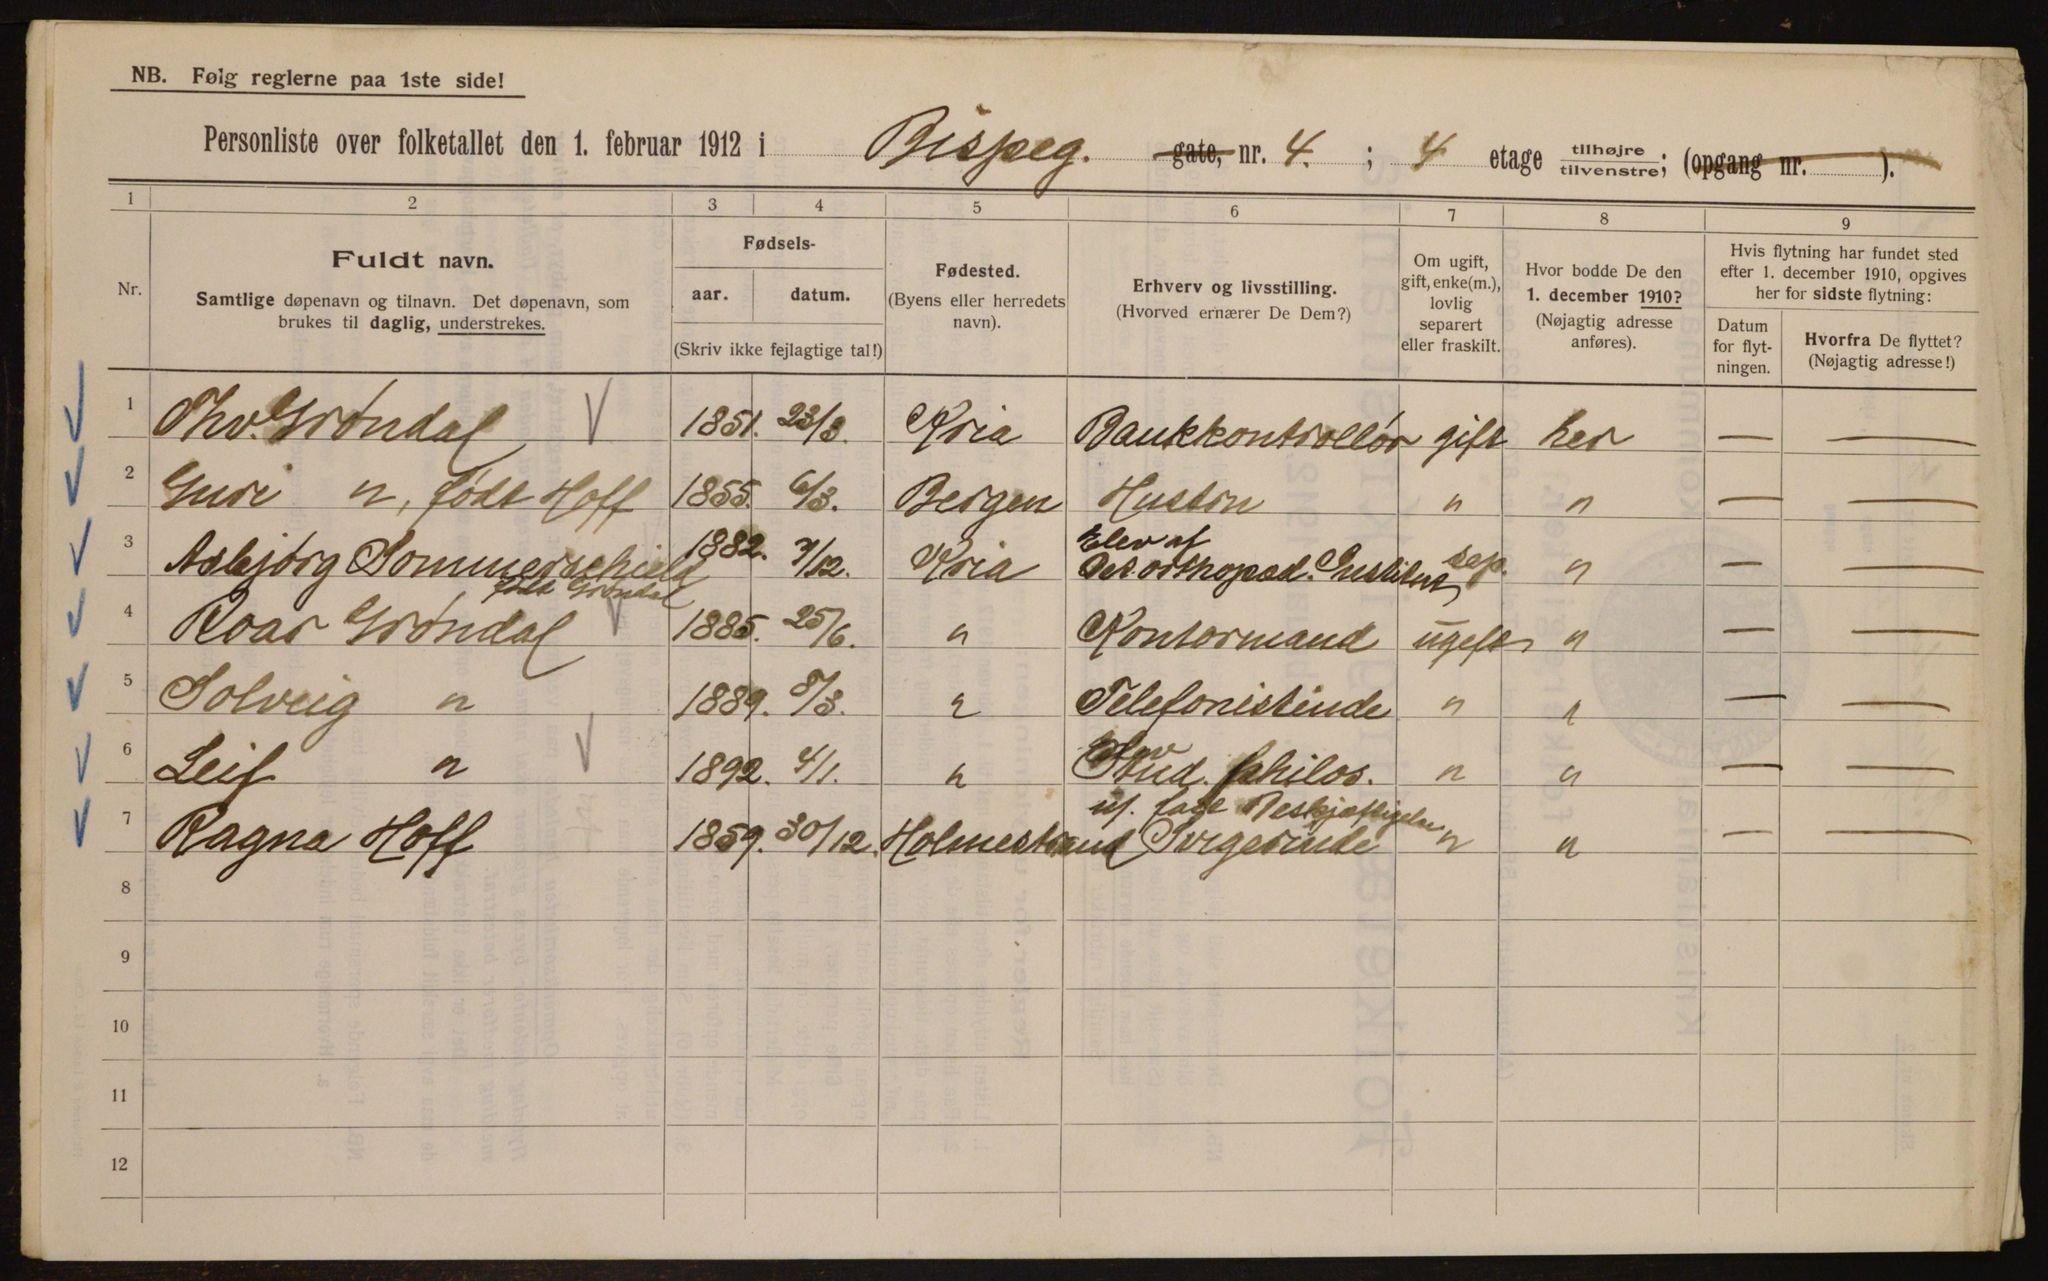 NB. Følg reglerne paa 1ste side!
Personliste over folketallet den 1. februar 1912 i Bispeg. gate, nr. 4. ; 4 etage tilhøjre/tilvenstre; (opgang nr. ).
1 2 3 4 5 6 7 8 9
Nr.
Fuldt navn.
Samtlige døpenavn og tilnavn. Det døpenavn, som
brukes til daglig, understrekes.
Fødsels-
aar. datum.
(Skriv ikke fejlagtige tal!)
Fødested.
(Byens eller herredets
navn).
Erhverv og livsstilling.
(Hvorved ernærer De Dem?)
Om ugift,
gift, enke(m.),
lovlig
separert
eller fraskilt.
Hvor bodde De den
1. december 1910?
(Nøjagtig adresse
anføres).
Hvis flytning har fundet sted
efter 1. december 1910, opgives
her for sidste flytning:
Datum
for flyt-
ningen.
Hvorfra De flyttet?
(Nøjagtig adresse!)
1 Thv. Grøndal 1851. 23/3. Kria Bankkontrollør gift her — —
2 Guri " , født Hoff 1855. 6/3. Bergen Hustru " " — —
3 Asbjørg Sommerschield 1882. 7/12. Kria Elev af
født Grøndal Det orthopæd. Institut sep. " — —
4 Roar Grøndal 1885. 25/6. " Kontormand ugift " — —
5 Solveig " 1889. 8/3. " Telefonistinde " " — —
6 Leif " 1892. 4/1. " Stud. philos. " " — —
7 Ragna Hoff 1859. 30/12. Holmestrand Syerinde " " — —
8
9
10
11
12